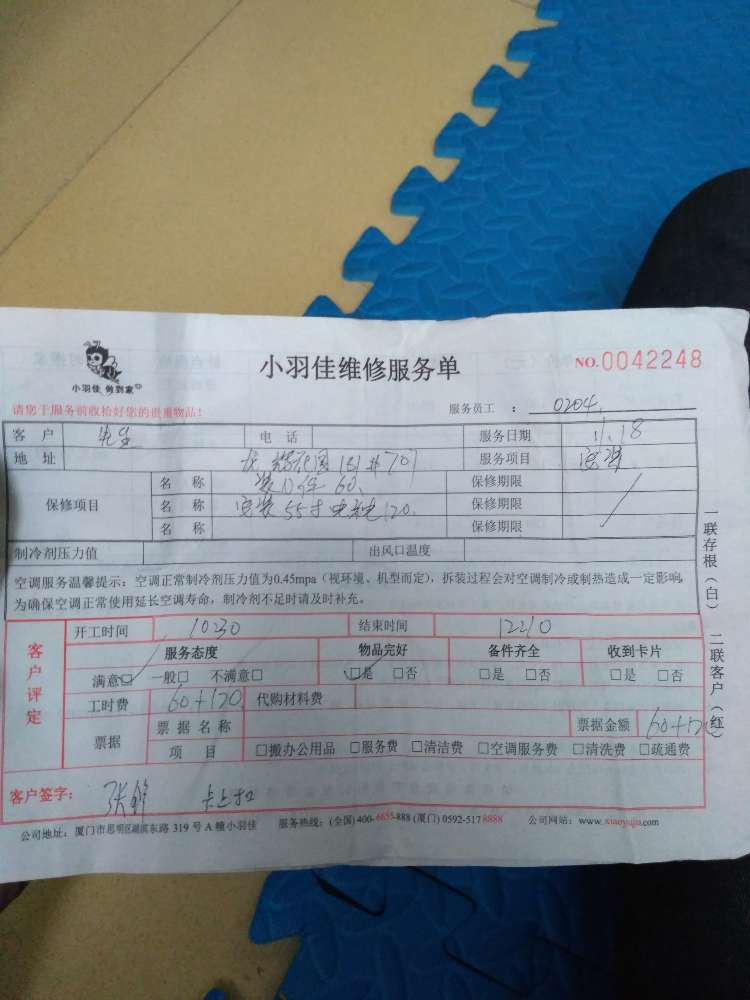 小羽佳 做到家
小羽佳维修服务单
NO.0042248
请您于服务前收拾好您的贵重物品!
服务员工 : 0204
客户 先生 电话 服务日期 11.18
地址 花园 131#701 服务项目 安装
保修项目
名称 60 保修期限
名称 安装55寸电视 120 保修期限
名称 保修期限
制冷剂压力值 出风口温度
空调服务温馨提示：空调正常制冷剂压力值为0.45mpa（视环境、机型而定），拆装过程会对空调制冷或制热造成一定影响,
为确保空调正常使用延长空调寿命，制冷剂不足时请及时补充。
客户评定
开工时间 10230 结束时间 12210
服务态度 物品完好 备件齐全 收到卡片
满意□ 一般□ 不满意□ □是 □否 □是 □否 □是 □否
工时费 60+120 代购材料费
票据 票据名称 票据金额 60+12
项目 □搬办公用品 □服务费 □清洁费 □空调服务费 □清洗费 □疏通费
客户签字： 张 卡上扣
公司地址：厦门市思明区湖滨东路 319 号 A 幢小羽佳 服务热线：(全国) 400-6655-888 (厦门) 0592-5178888 公司网站：www.xiaoyujia.com
一联存根（白） 二联客户（红）